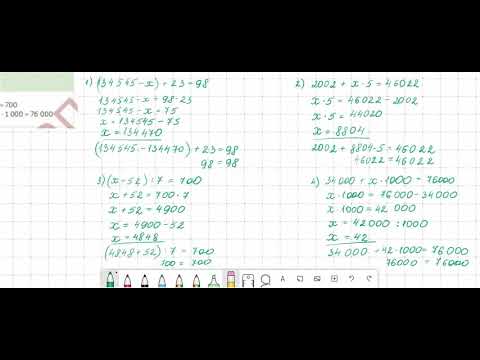 = 700
· 1 000 = 76 000
1) (134545 - x) + 23 = 98
134545 - x = 98 - 23
134545 - x = 75
x = 134545 - 75
x = 134470
(134545 - 134470) + 23 = 98
98 = 98
2) 2002 + x · 5 = 46022
x · 5 = 46022 - 2002
x · 5 = 44020
x = 8804
2002 + 8804 · 5 = 46022
46022 = 46022
3) (x + 52) : 7 = 700
x + 52 = 700 · 7
x + 52 = 4900
x = 4900 - 52
x = 4848
(4848 + 52) : 7 = 700
700 = 700
4) 34000 + x · 1000 = 76000
x · 1000 = 76000 - 34000
x · 1000 = 42 000
x = 42 000 : 1000
x = 42
34 000 + 42 · 1000 = 76 000
76000 = 76000